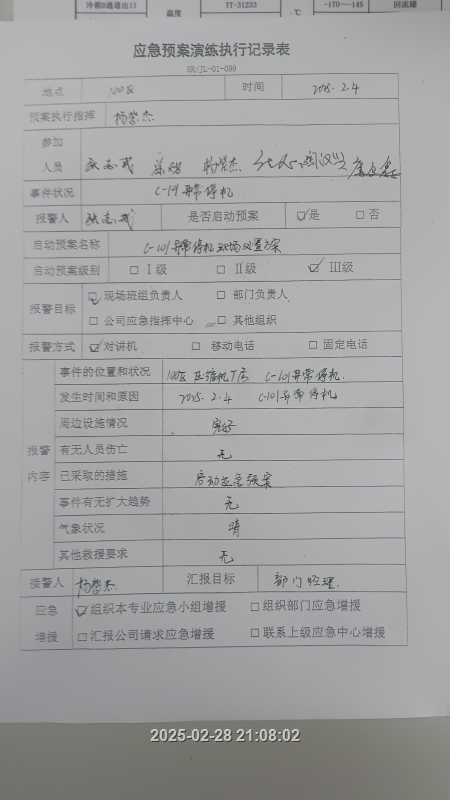 冷箱B通道出口 TT-31233 -170~-145 回流罐
温度 ℃
应急预案演练执行记录表
SR/JL-01-099
地点 100区 时间 2025.2.4
预案执行指挥 杨崇杰
参加
人员 杨崇杰
事件状况 C-101异常停机
报警人 是否启动预案 ☑是 □否
启动预案名称 C-101异常停机现场处置方案
启动预案级别 □Ⅰ级 □Ⅱ级 ☑Ⅲ级
报警目标 ☑现场班组负责人 □部门负责人
□公司应急指挥中心 □其他组织
报警方式 ☑对讲机 □移动电话 □固定电话
报警内容 事件的位置和状况 100区压缩机厂房 C-101异常停机.
发生时间和原因 2025.2.4 C-101异常停机
周边设施情况 完好
有无人员伤亡 无
已采取的措施 启动应急预案
事件有无扩大趋势 无
气象状况 晴
其他救援要求 无
接警人 杨崇杰 汇报目标 部门经理.
应急 ☑组织本专业应急小组增援 □组织部门应急增援
增援 □汇报公司请求应急增援 □联系上级应急中心增援
2025-02-28 21:08:02